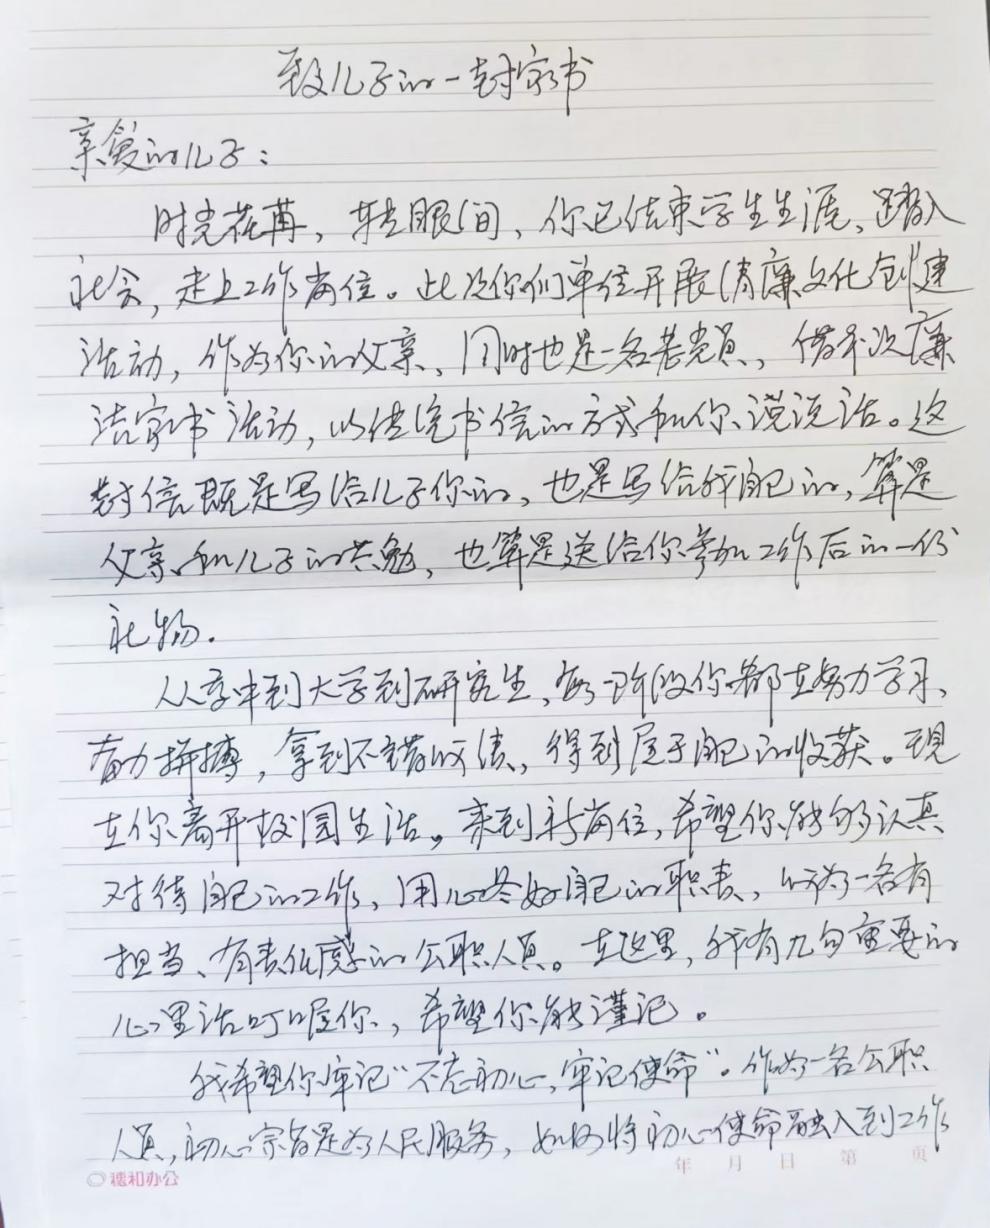 致儿子的一封家书
亲爱的儿子：
时光荏苒，转眼间，你已结束学生生涯、踏入
社会，走上工作岗位。此次你们单位开展清廉文化创建
活动，作为你的父亲、同时也是一名老党员，借本次廉
洁家书活动，以传统书信的方式和你说说话。这
封信既是写给儿子你的，也是写给我自己的，算是
父亲和儿子的共勉，也算是送给你参加工作后的一份
礼物.
从高中到大学到研究生，每一阶段你都在努力学习、
奋力拼搏，拿到不错的成绩，得到属于自己的收获。现
在你离开校园生活。来到新岗位，希望你能够认真
对待自己的工作，用心尽好自己的职责、做为一名有
担当、有责任感的公职人员。在这里，我有几句重要的
心里话叮嘱你，希望你能谨记。
我希望你牢记“不忘初心，牢记使命”。作为一名公职
人员，初心宗旨是为人民服务，如何将初心使命融入到工作
年 月 日 第 页
穗和办公